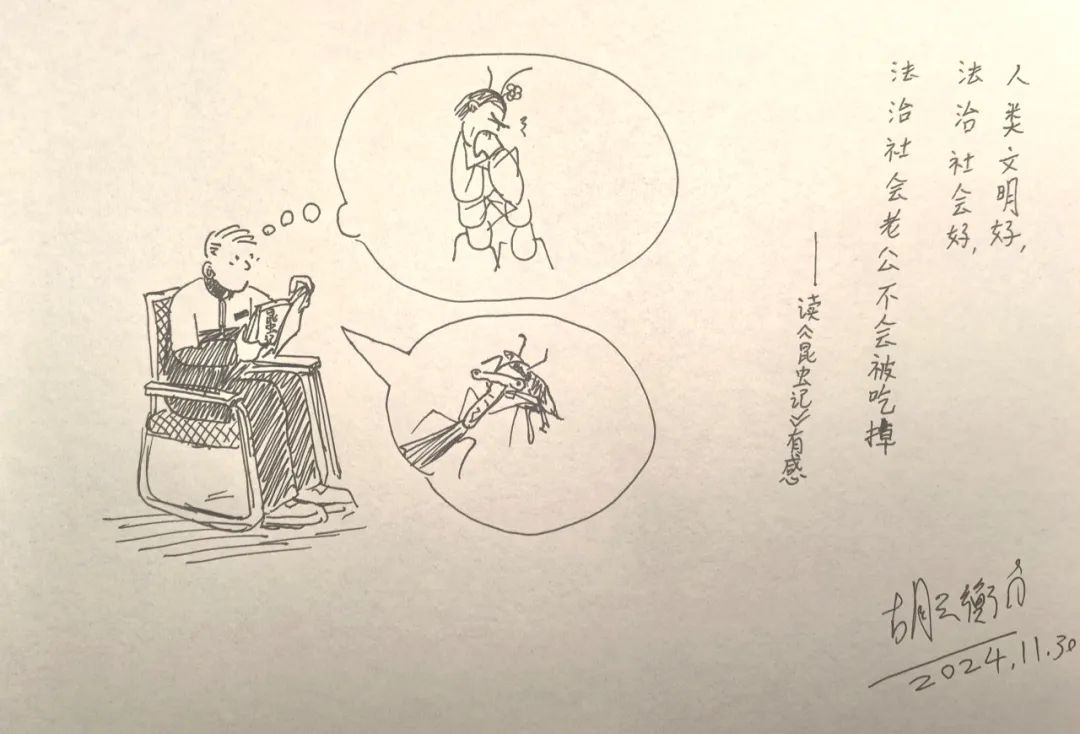 人类文明好，
法治社会好，
法治社会老公不会被吃掉
——读《昆虫记》有感
昆虫记
胡云衡
2024.11.30